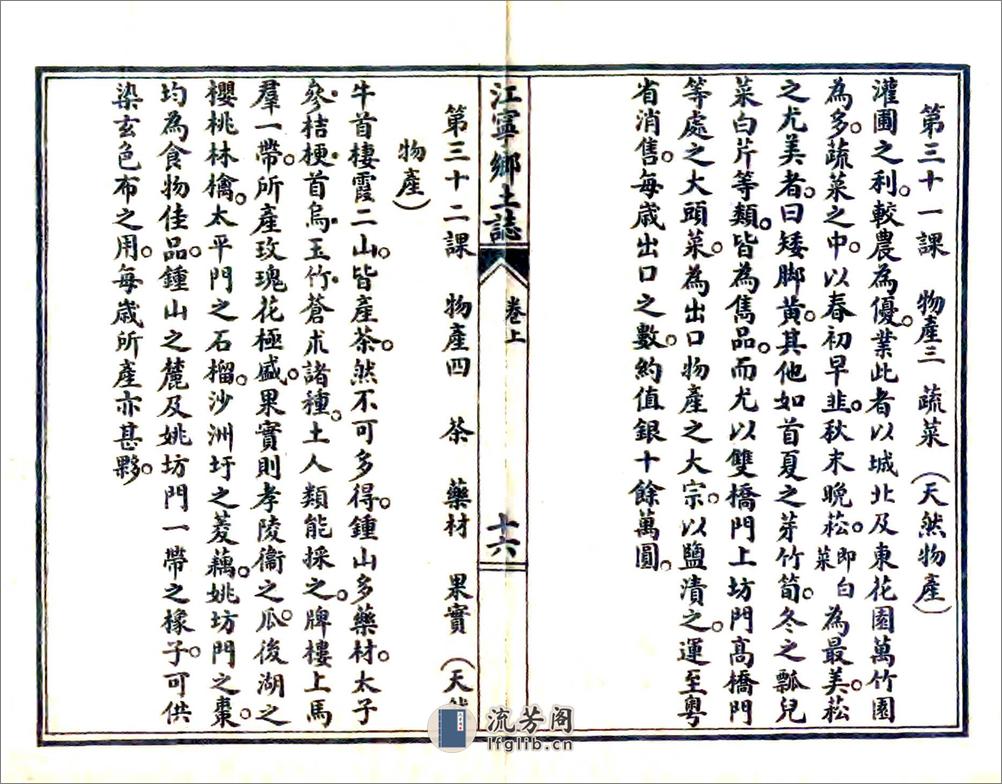 第三十一課　物產三　蔬菜（天然物產）
灌圃之利。較農為優。業此者以城北及東花園萬竹園
為多。蔬菜之中。以春初早韭。秋末晚菘。即白菜為最美。菘
之尤美者。曰矮脚黃。其他如首夏之芽竹筍。冬之瓢兒
菜白芹等類。皆為雋品。而尤以雙橋門上坊門高橋門
等處之大頭菜。為出口物產之大宗。以鹽漬之。運至粵
省消售。每歲出口之數。約值銀十餘萬圓。
江寧鄉土誌
卷上
十六
第三十二課　物產四　茶　藥材　果實（天然
物產）
牛首棲霞二山。皆產茶。然不可多得。鍾山多藥材。太子
參桔梗首烏玉竹蒼朮諸種。土人類能採之。牌樓上馬
羣一帶。所產玫瑰花極盛。果實則孝陵衞之瓜。後湖之
櫻桃林檎。太平門之石榴。沙洲圩之菱藕。姚坊門之棗。
均為食物佳品。鍾山之麓及姚坊門一帶之橡子。可供
染玄色布之用。每歲所產亦甚夥。
流芳阁
lfglib.cn